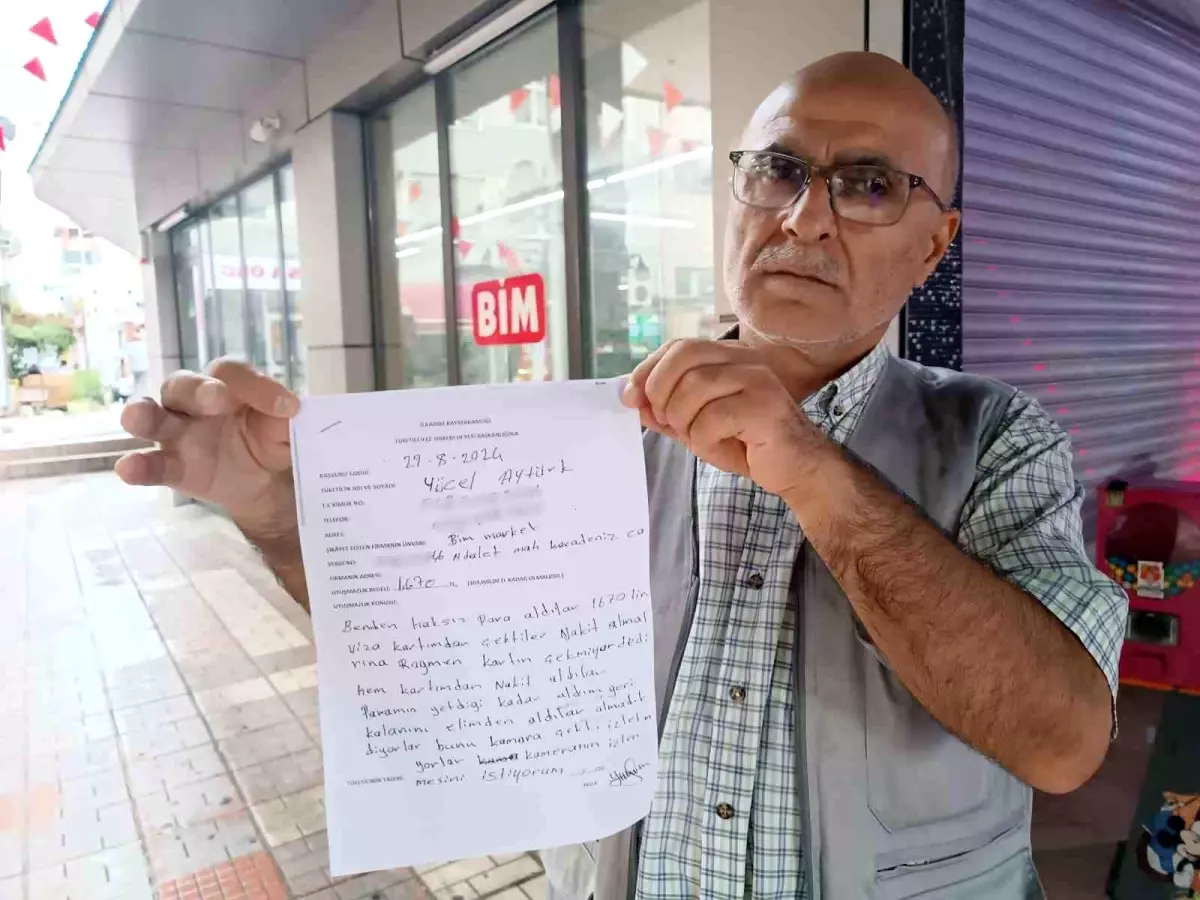 BİM
İLKADIM KAYMAKAMLIĞI
TÜKETİCİ İLÇE HAKEM HEYETİ BAŞKANLIĞINA
BAŞVURU TARİHİ: 29-8-2024
TÜKETİCİN ADI VE SOYADI: Yücel Aytürk
T.C KİMLİK NO:
TELEFON:
ADRES:
ŞİKAYET EDİLEN FİRMANIN ÜNVANI: Bim market
VERGİ NO:
FİRMANIN ADRESİ: Adalet mah karadeniz ca
UYUŞMAZLIK BEDELİ: 1670
UYUŞMAZLIK KONUSU:
Benden haksız Para aldılar 1670 lira
Viza kartımdan çektiler Nakit almal
rına Rağmen kartın çekmiyor dedi
hem kartımdan Nakit aldılar
Paramın yetdiği kadar aldım geri
kalanını elimden aldılar almadık
diyorlar bunu kamara çekti izletm
yorlar kameranın izlen
mesini istiyorum
TÜKETİCİNİN TALEBİ:
İMZA